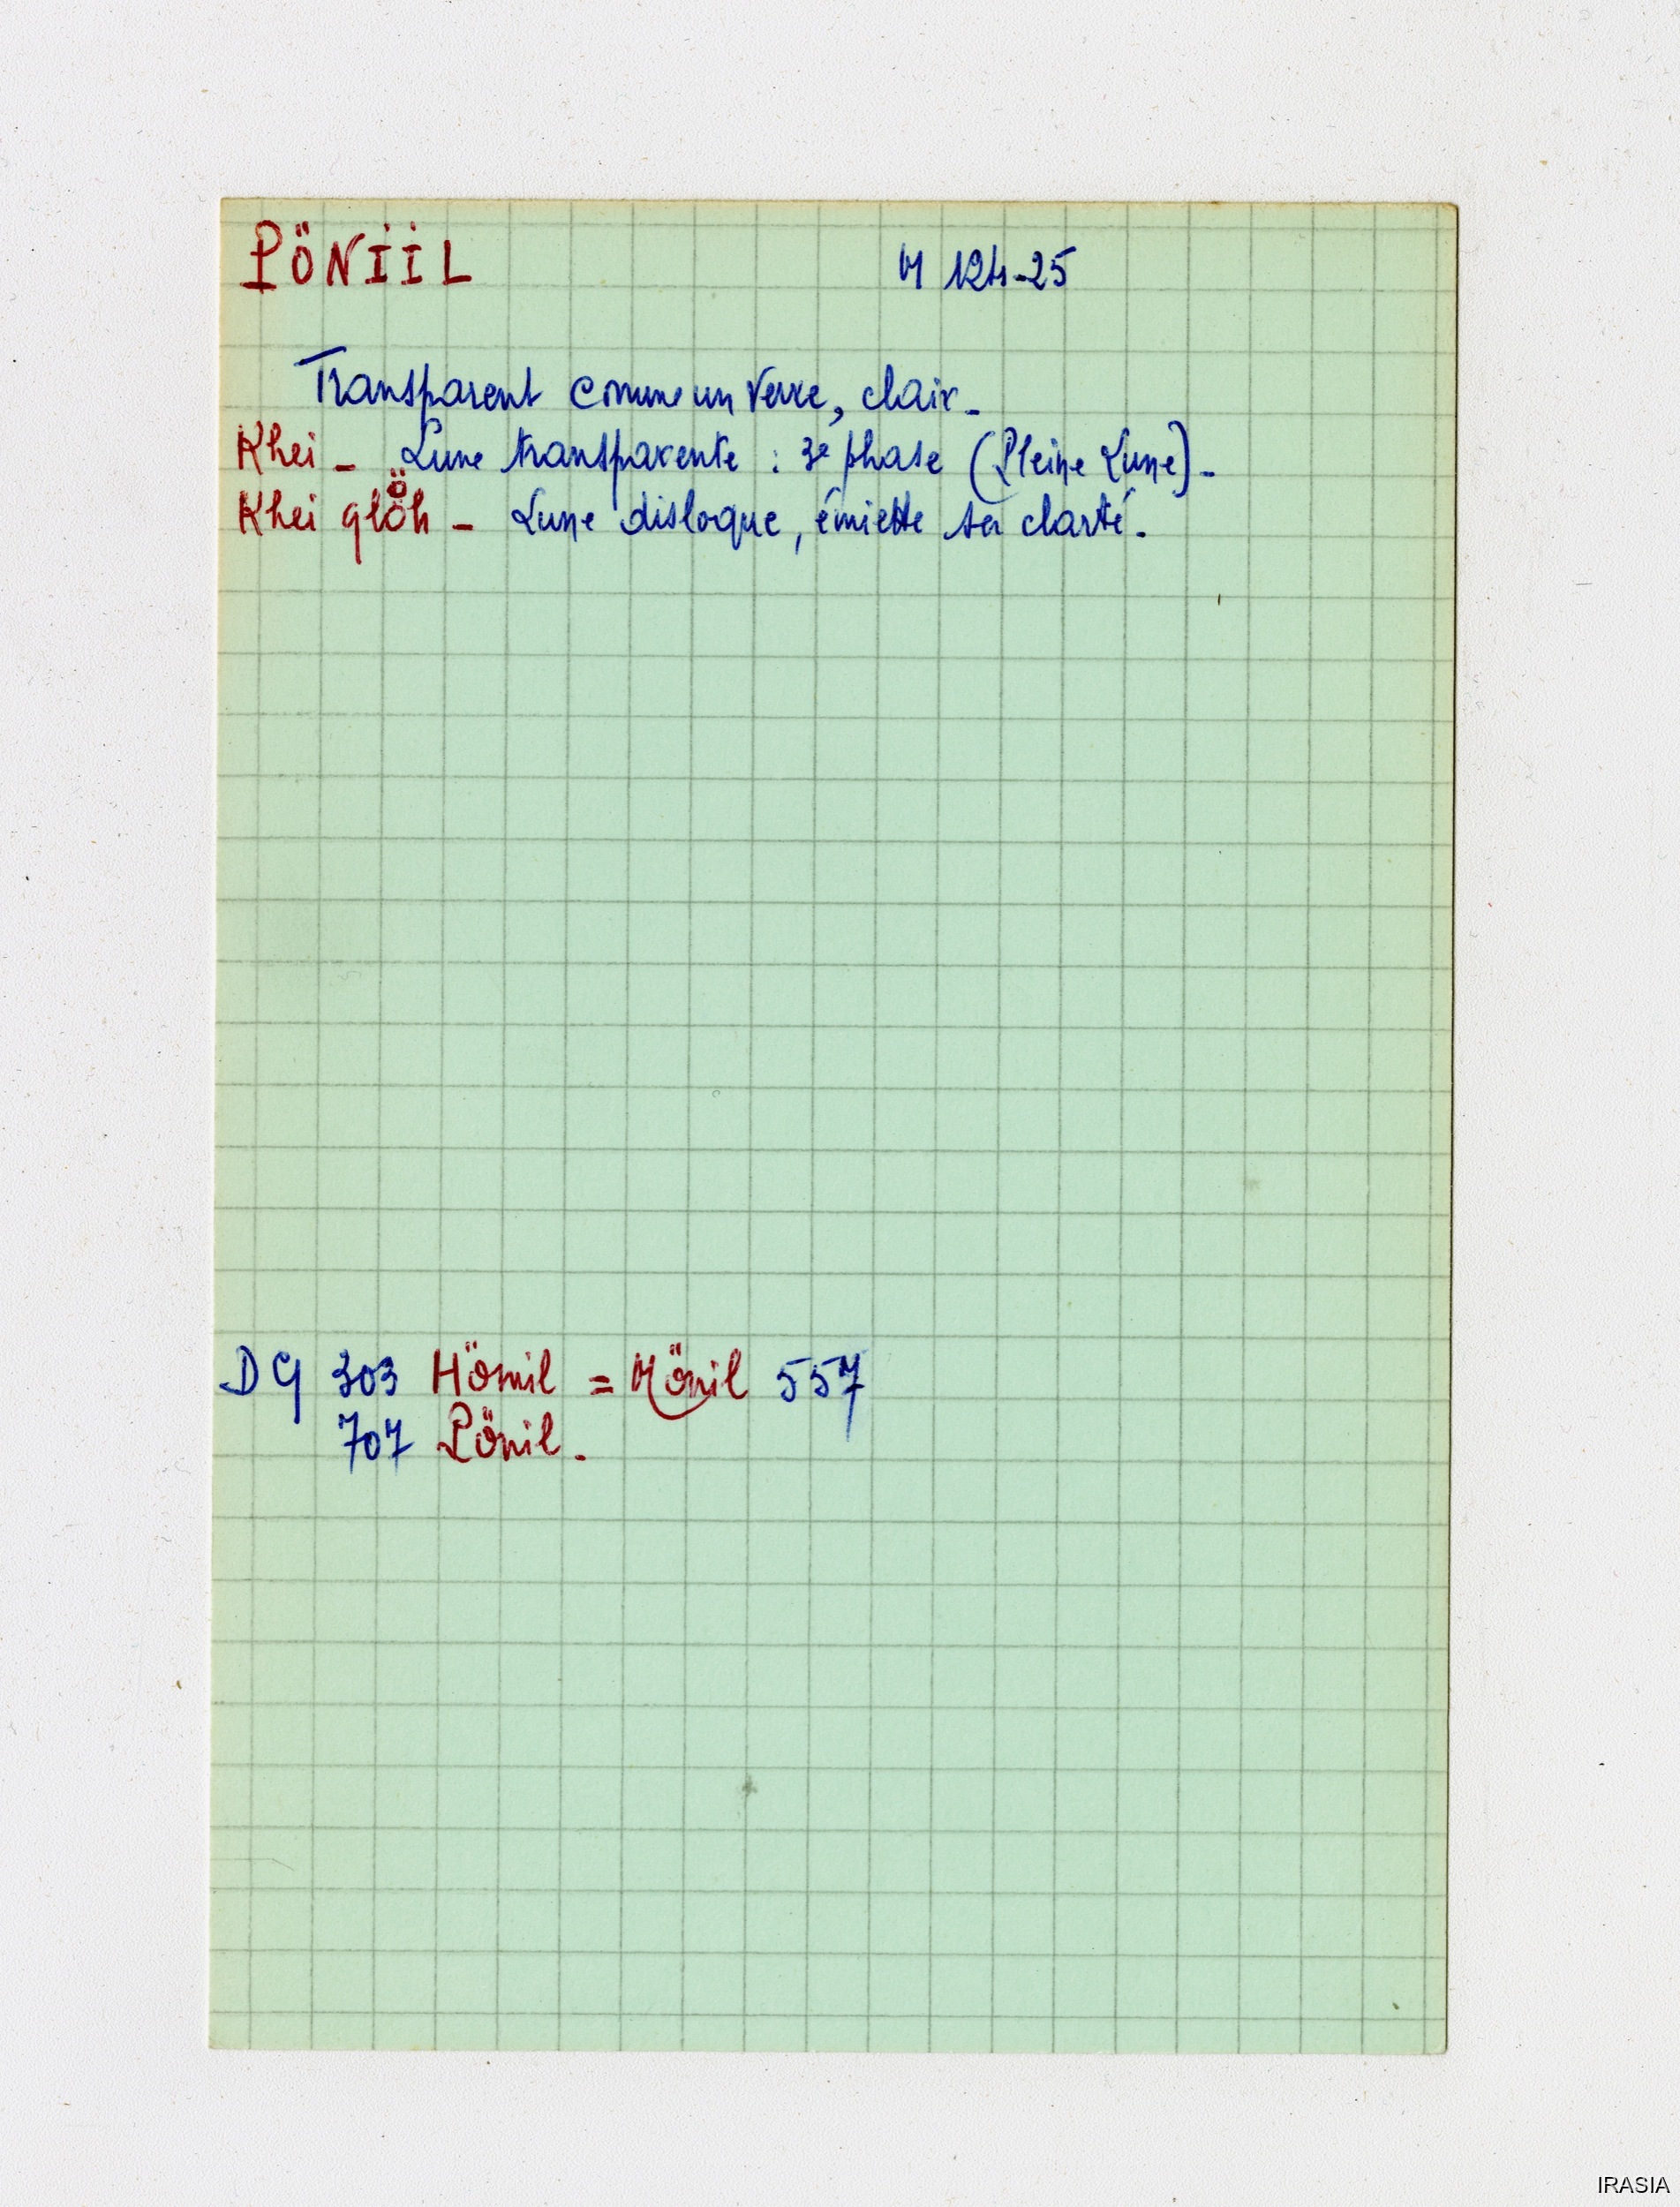 PÖNIIL M 124-25
Transparent comme un verre, clair.
Khei - Lune transparente : 3e phase (Pleine Lune).
Khei glöh - Lune disloque, émiette sa clarté.
DG 303 Hömil = Mönil 557
707 Pönil.
IRASIA